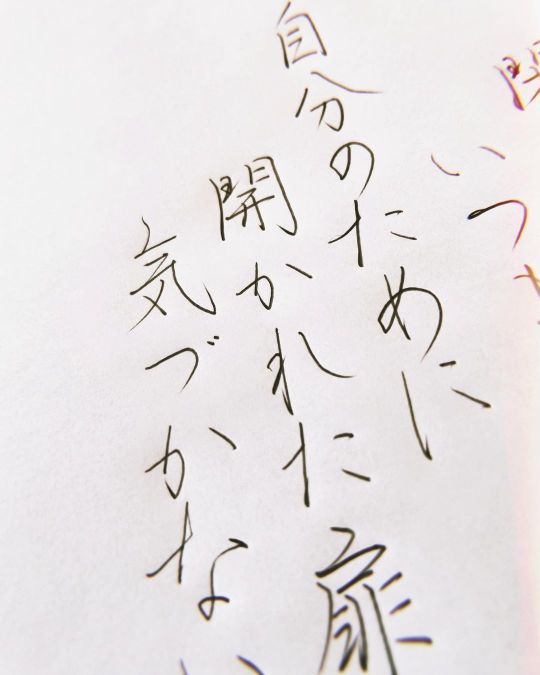 いつ
自分のために
開かれた扉
気づかない